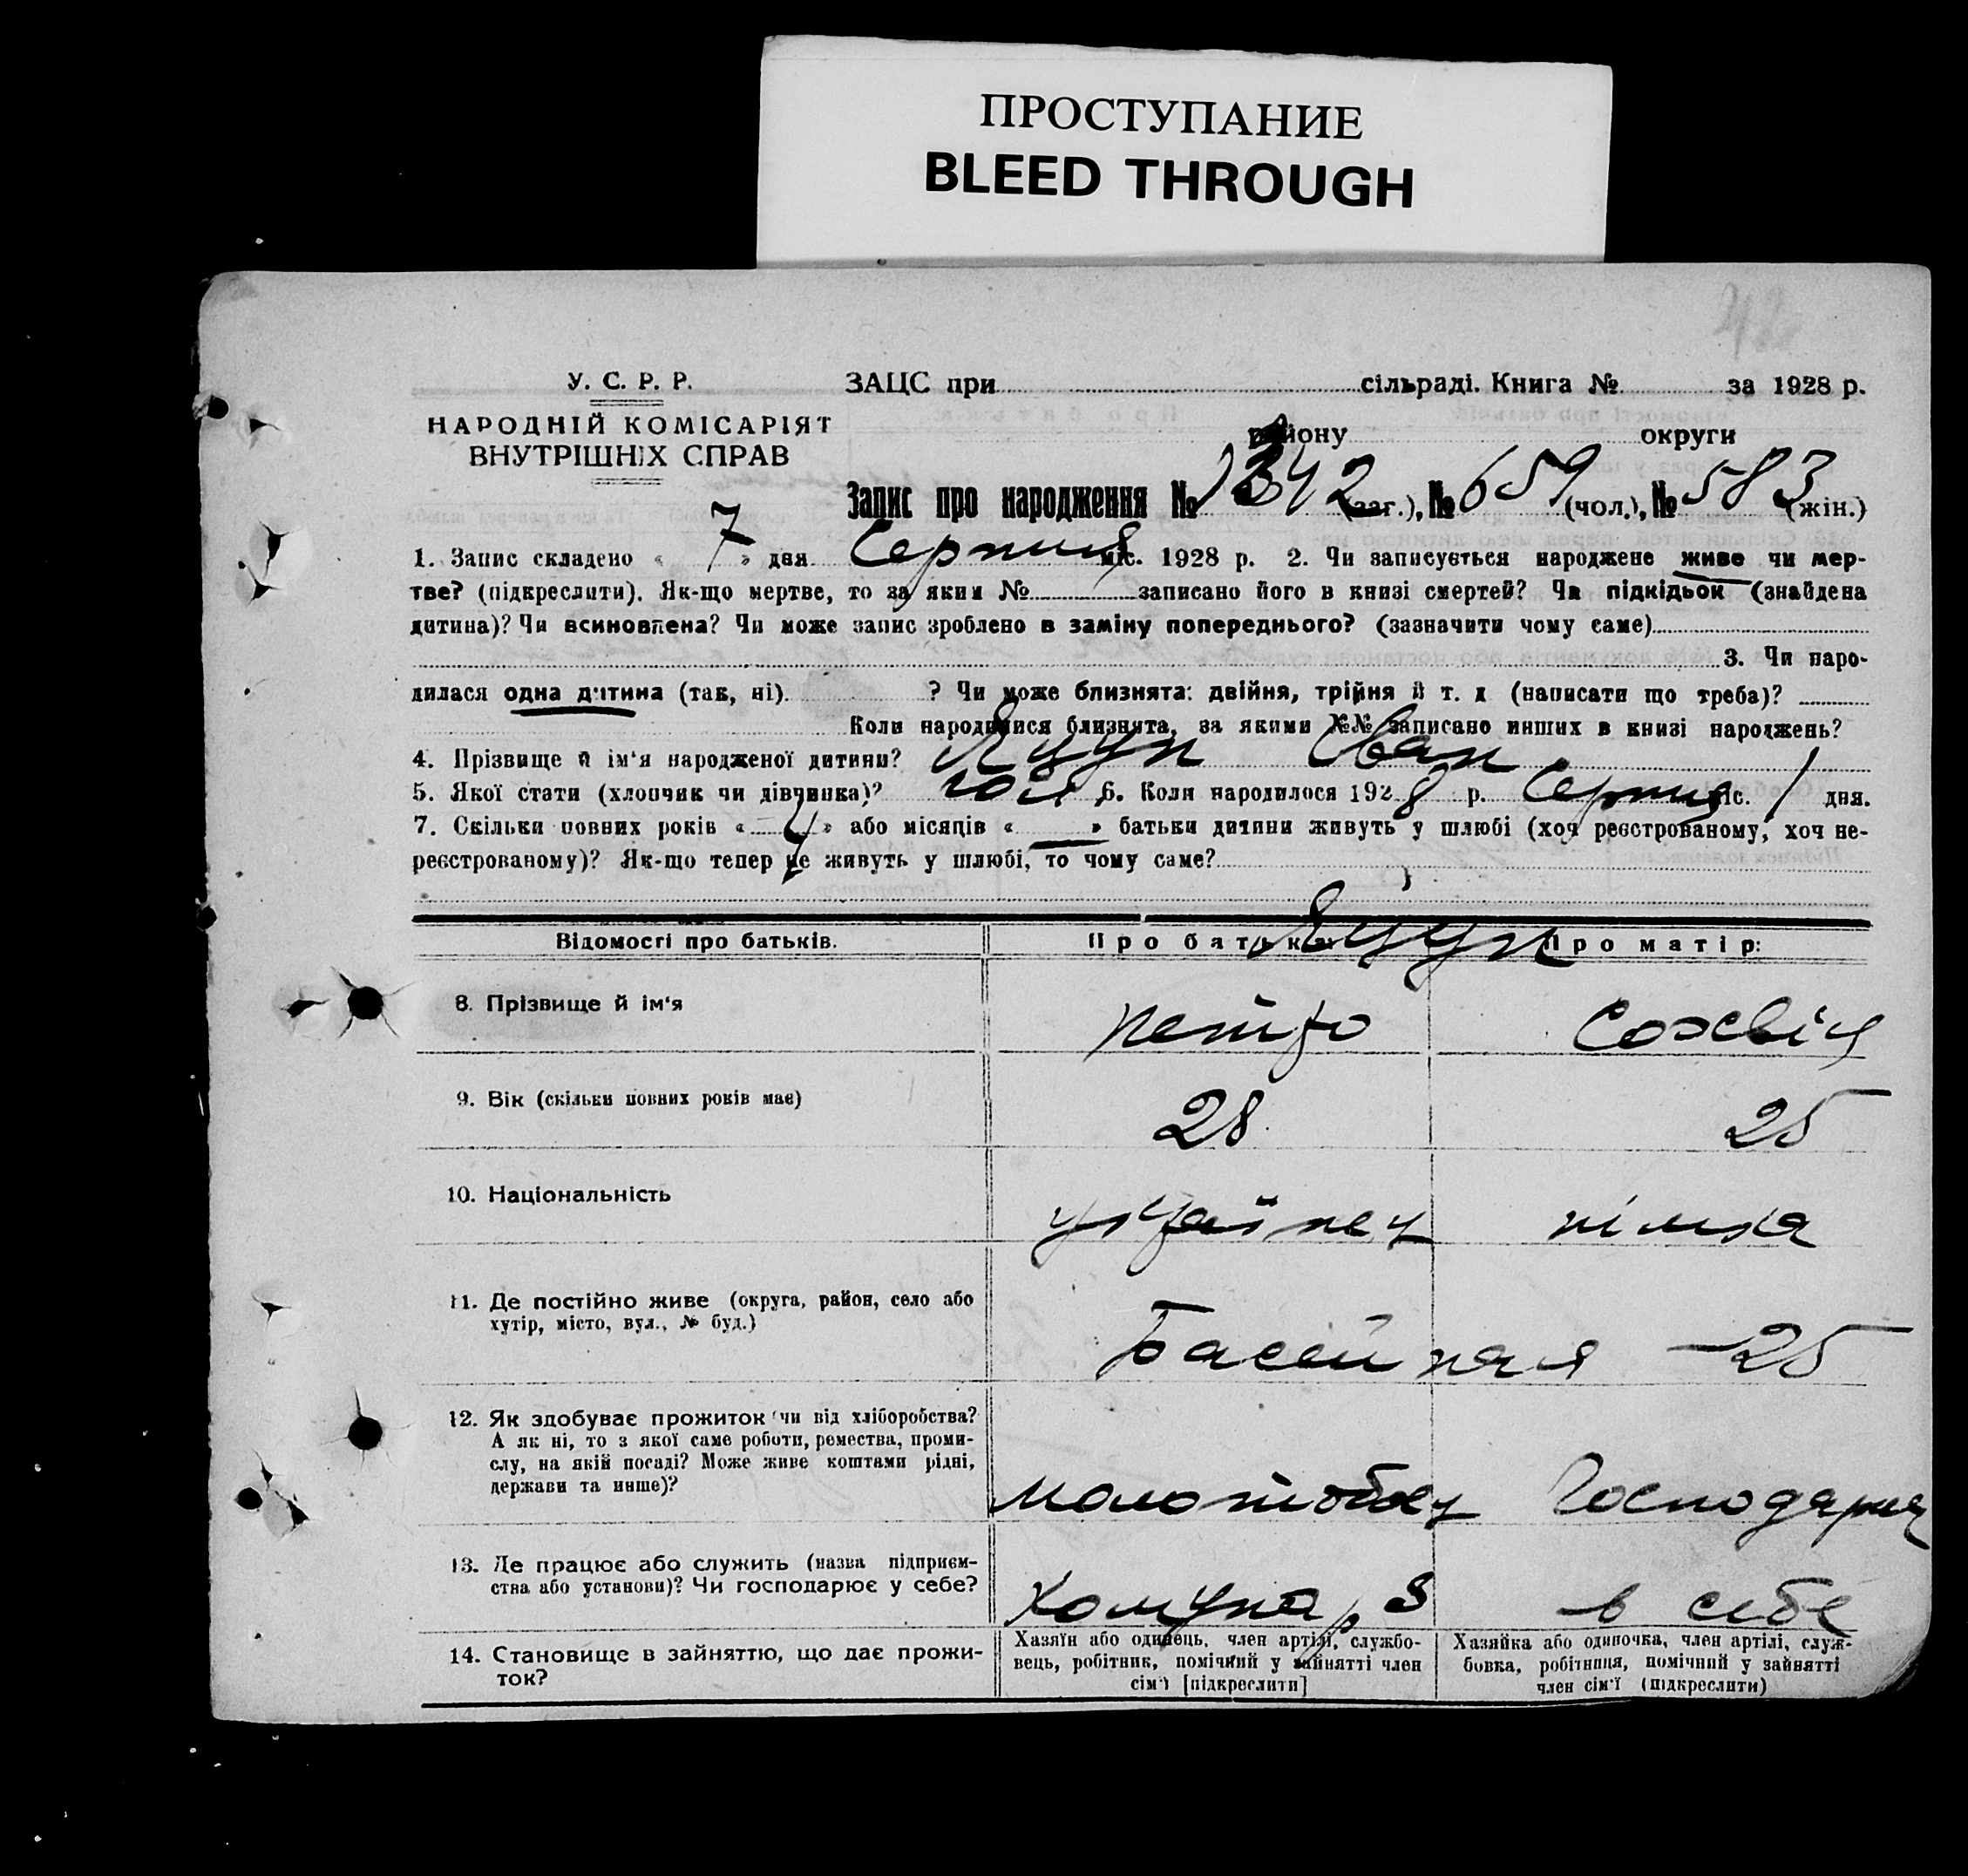 ПРОСТУПАНИЕ
BLEED THROUGH
42
У. С. Р. Р.
НАРОДНІЙ КОМІСАРІЯТ
ВНУТРІШНІХ СПРАВ
ЗАЦС при сільраді. Книга № за 1928 р.
району округи
Запис про народження № 1242 (заг.), № 659 (чол.), № 583 (жін.)
1. Запис складено « 7 » дня Серпня міс. 1928 р. 2. Чи записується народжене живе чи мер-
тве? (підкреслити). Як-що мертве, то за яким № записано його в книзі смертей? Чи підкідьок (знайдена
дитина)? Чи всиновлена? Чи може запис зроблено в заміну попереднього? (зазначити чому саме)
3. Чи наро-
дилася одна дитина (так, ні) ? Чи може близнята: двійня, трійня й т. д (написати що треба)?
Коли народилися близнята, за якими №№ записано инших в книзі народжень?
4. Прізвище й ім'я народженої дитини? Яцун Іван
5. Якої стати (хлопчик чи дівчинка)? чол 6. Коли народилося 1928 р. Серпня міс. 1 дня.
7. Скільки повних років « 4 » або місяців « — » батьки дитини живуть у шлюбі (хоч реєстрованому, хоч не-
реєстрованому)? Як-що тепер не живуть у шлюбі, то чому саме?
Відомості про батьків. Про батька: Про матір:
Яцун
8. Прізвище й ім'я Петро Софія
9. Вік (скільки повних років має) 28 25
10. Національність українец німка
11. Де постійно живе (округа, район, село або
хутір, місто, вул., № буд.)
Басейная - 25
12. Як здобуває прожиток (чи від хліборобства?
А як ні, то з якої саме роботи, ремества, проми-
слу, на якій посаді? Може живе коштами рідні,
держави та инше)?
молотобоец Господарка
13. Де працює або служить (назва підприєм-
ства або установи)? Чи господарює у себе?
Комунар 3 в себе
14. Становище в зайняттю, що дає прожи-
ток?
Хазяїн або одинець, член артілі, службо-
вець, робітник, помічний у зайнятті член
сім'ї [підкреслити]
Хазяйка або одиночка, член артілі, служ-
бовка, робітниця, помічний у зайнятті
член сім'ї (підкреслити)